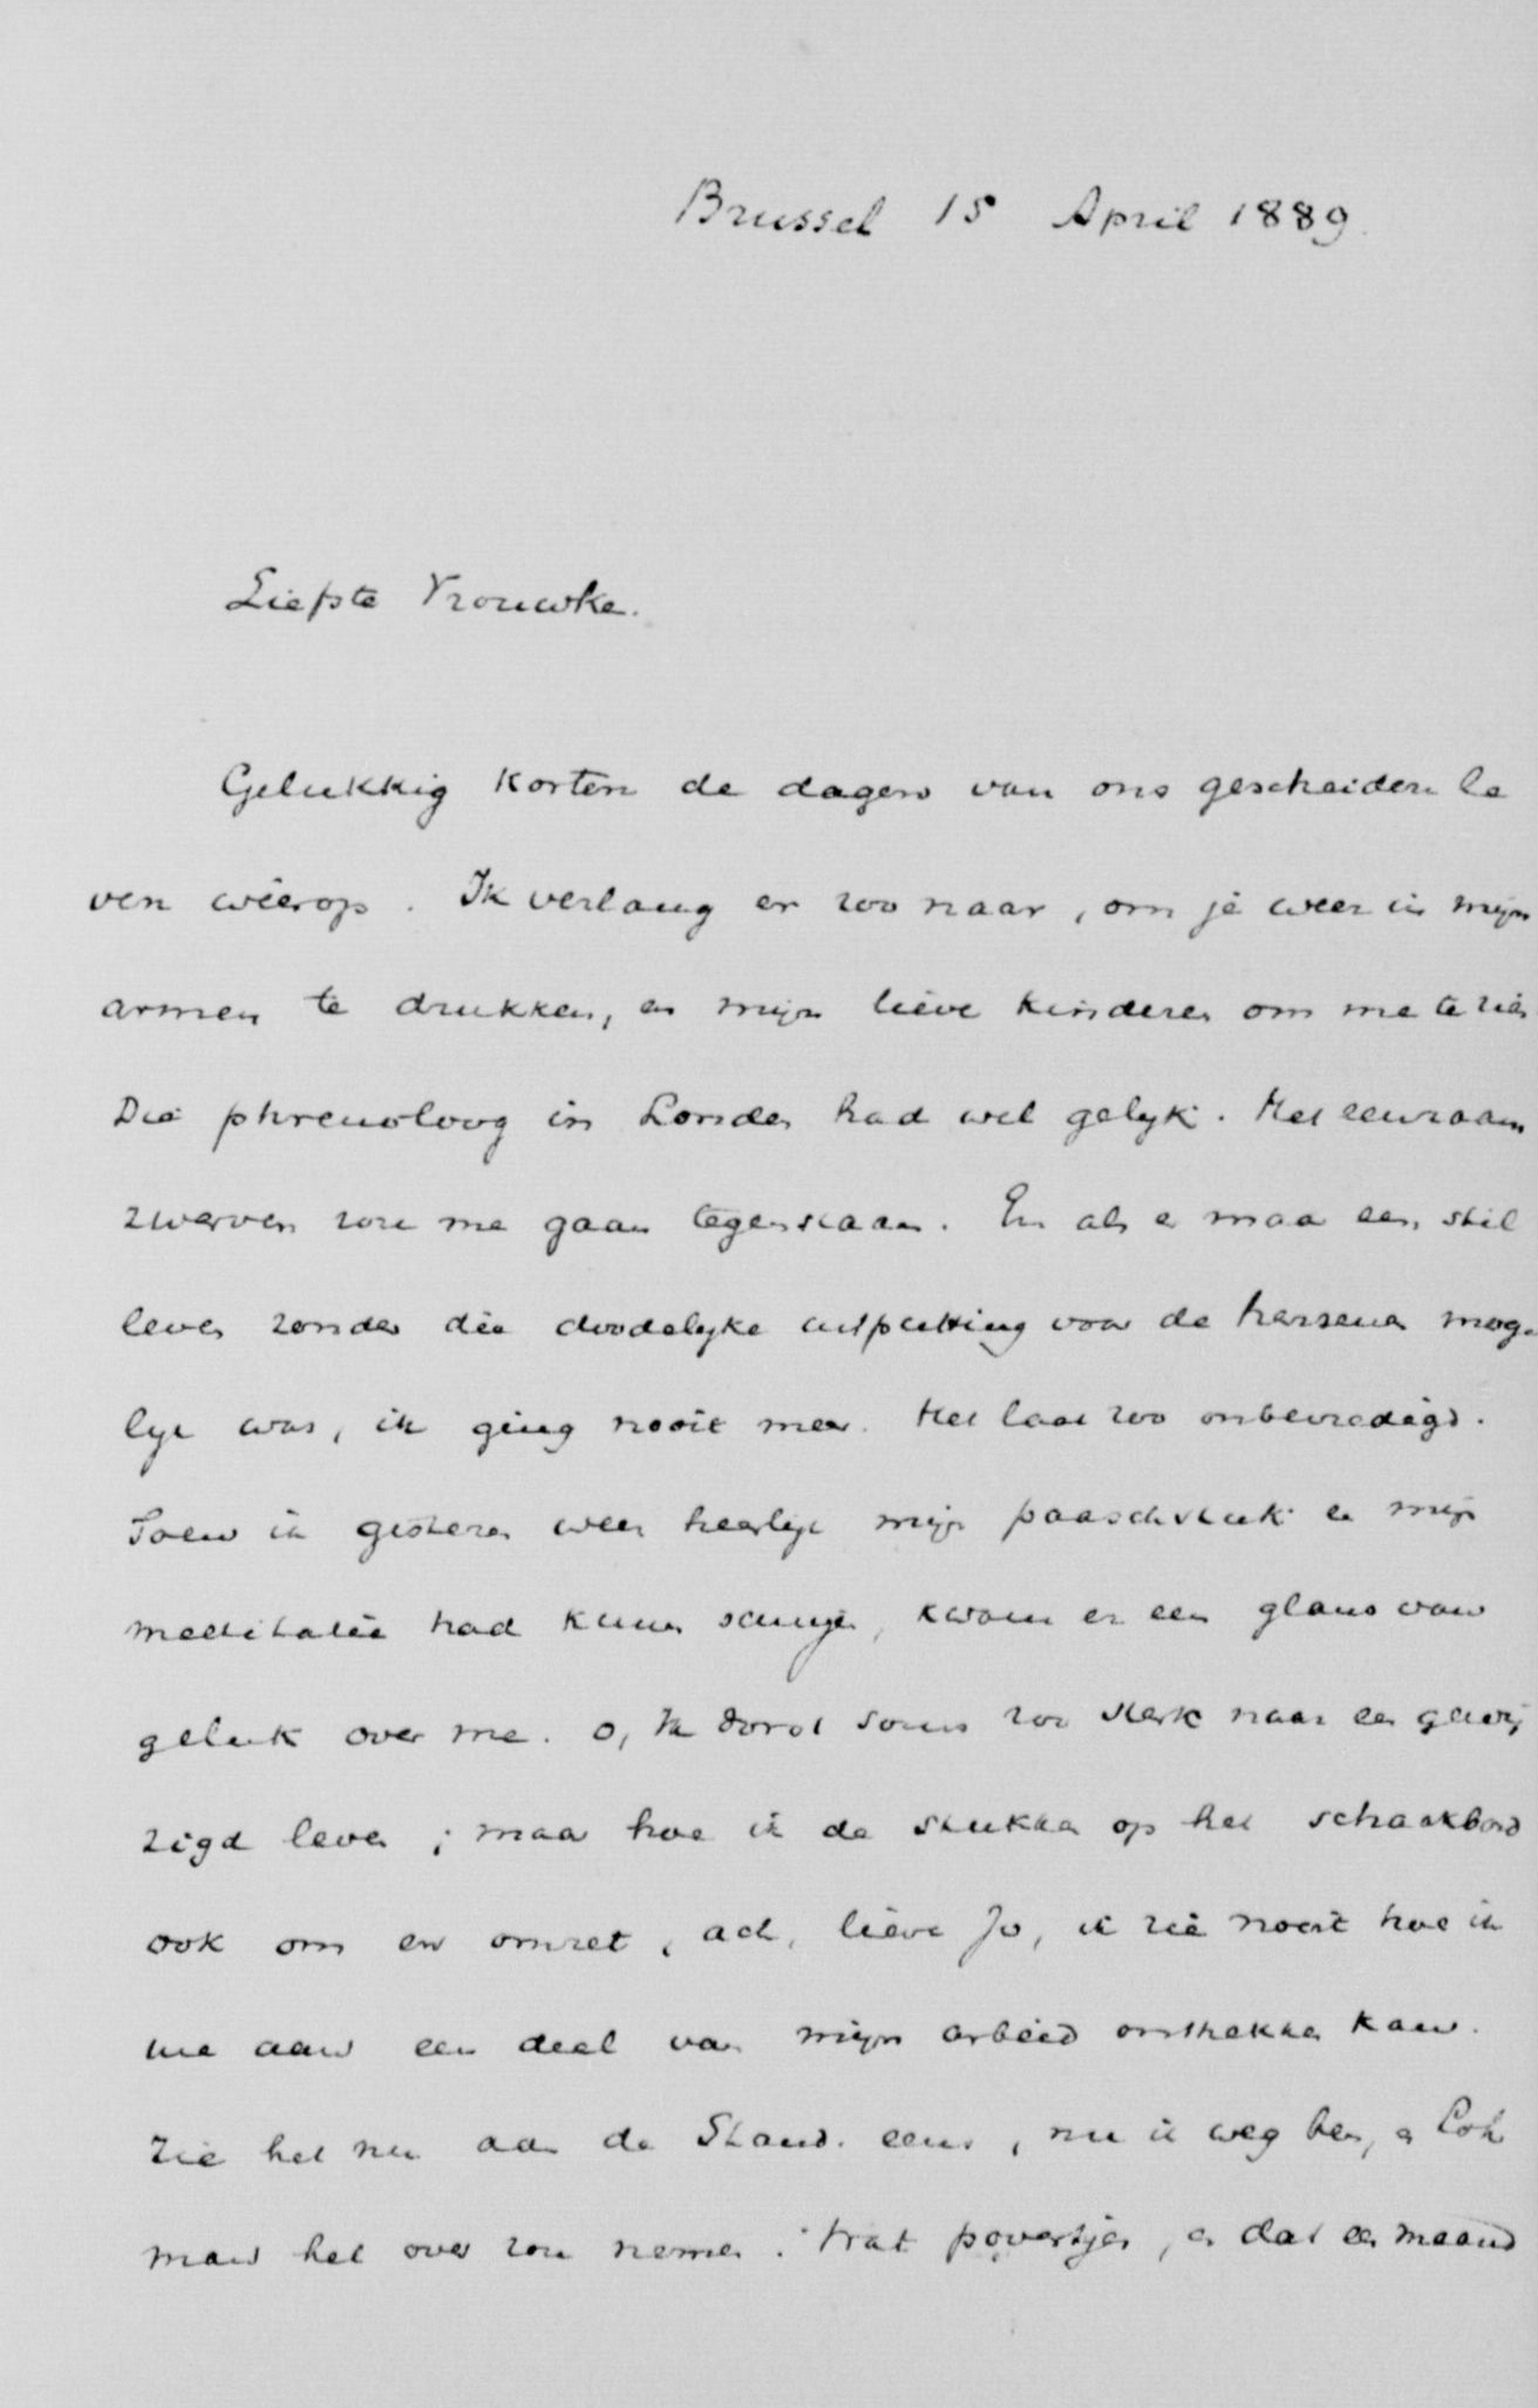 Brussel 15 April 1889.
Liefste Vrouwke.
Gelukkig korten de dagen van ons gescheiden le
ven weer op. Ik verlang er zoo naar, om je weer in mijn
armen te drukken, en mijn lieve kinderen om me te zien
Die phrenoloog in Londen had wel gelyk. Het eenzaam
zwerven zou me gaan tegenstaan. En als er maar een stil
leven zonder die doodelyke uitputting voor de hersenen moge
lyk was, ik ging nooit meer. Het laat zoo onbevredigd.
Toen ik gisteren weer heerlyk mijn paaschstuk en mijn
meditatie had kunnen , kwam er een glans van
geluk over me. O, ik dorst soms zoo sterk naar een gewij
zigd leven; maar hoe ik de stukken op het schaakbord
ook om en omzet, ach, lieve Jo, ik zie nooit hoe ik
me aan een deel van mijn arbeid onttrekken kan.
Zie het nu aan de Stand. eens, nu ik weg ben, en Loh
man het over zou nemen. Wat povertjes, en dat een maand